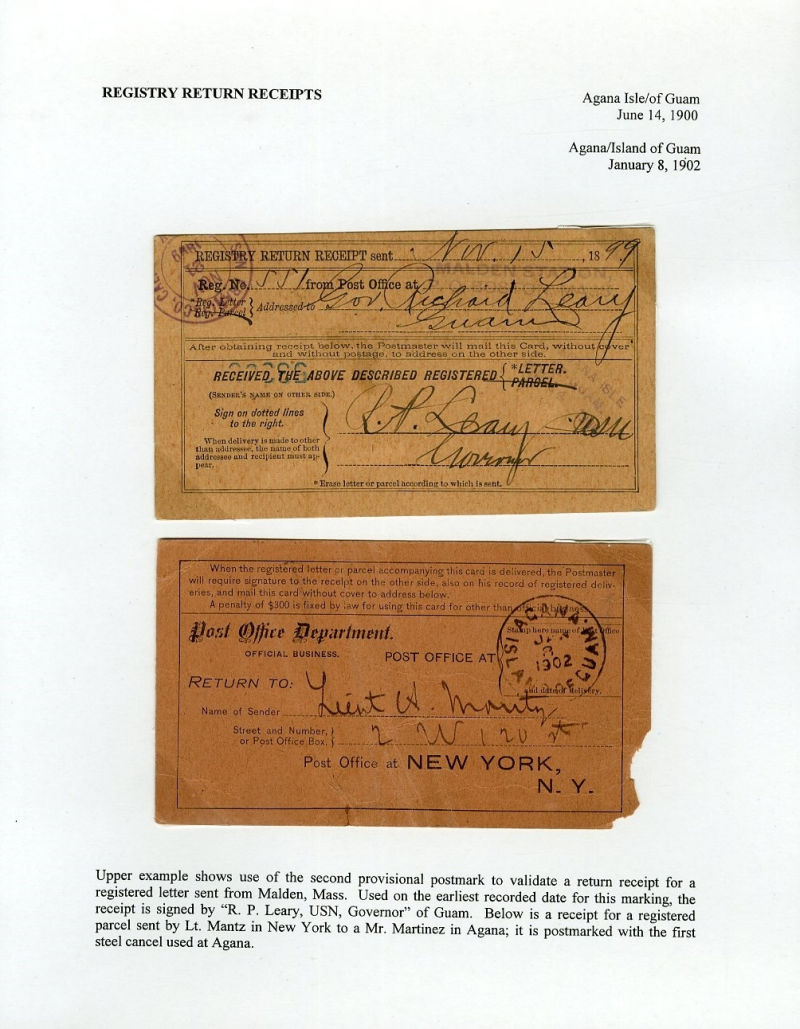 REGISTRY RETURN RECEIPTS
Agana Isle/of Guam
June 14, 1900
Agana/Island of Guam
January 8, 1902
REGISTRY RETURN RECEIPT sent Nov. 15, 1899
MALDEN STATION
Reg. No. 551 from Post Office at
*Reg. Letter
Reg. Parcel
Addressed to Gov. Richard Leary
Guam
After obtaining receipt below, the Postmaster will mail this Card, without cover
and without postage, to address on the other side.
RECEIVED THE ABOVE DESCRIBED REGISTERED { *LETTER.
PARCEL.
(SENDER'S NAME ON OTHER SIDE.)
Sign on dotted lines
to the right.
R. P. Leary USN
Governor
When delivery is made to other
than addressee, the name of both
addressee and recipient must ap-
pear.
* Erase letter or parcel according to which is sent.
When the registered letter or parcel accompanying this card is delivered, the Postmaster
will require signature to the receipt on the other side, also on his record of registered deliv-
eries, and mail this card without cover to address below.
A penalty of $300 is fixed by law for using this card for other than official business.
Post Office Department.
OFFICIAL BUSINESS.
POST OFFICE AT
Stamp here name of Post Office
and date of delivery.
AGANA. ISLAND OF GUAM
JAN
8
1902
RETURN TO:
Name of Sender Lieut H. Mantz
Street and Number,
or Post Office Box, } 2 W 120 st
Post Office at NEW YORK,
N. Y.
Upper example shows use of the second provisional postmark to validate a return receipt for a
registered letter sent from Malden, Mass. Used on the earliest recorded date for this marking, the
receipt is signed by “R. P. Leary, USN, Governor” of Guam. Below is a receipt for a registered
parcel sent by Lt. Mantz in New York to a Mr. Martinez in Agana; it is postmarked with the first
steel cancel used at Agana.